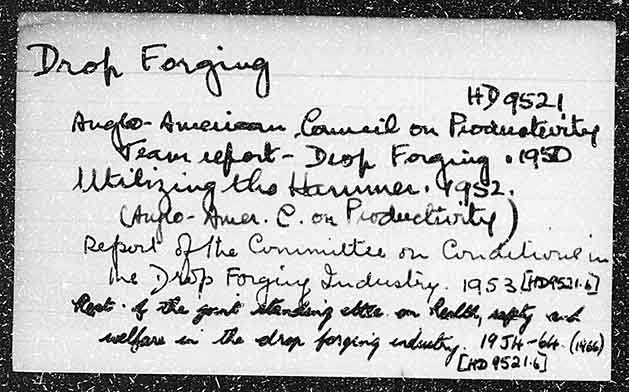 Drop Forging
HD9521
Anglo-American Council on Productivity
Team report - Drop Forging . 1950
Utilizing the Hammer. 1952.
(Anglo-Amer. C. on Productivity)
Report of the Committee on Conditions in
the Drop Forging Industry. 1953 [HD9521.6]
Repts. of the joint standing cttee. on health, safety and
welfare in the drop forging industry. 1954-64. (1966)
[HD9521.6]